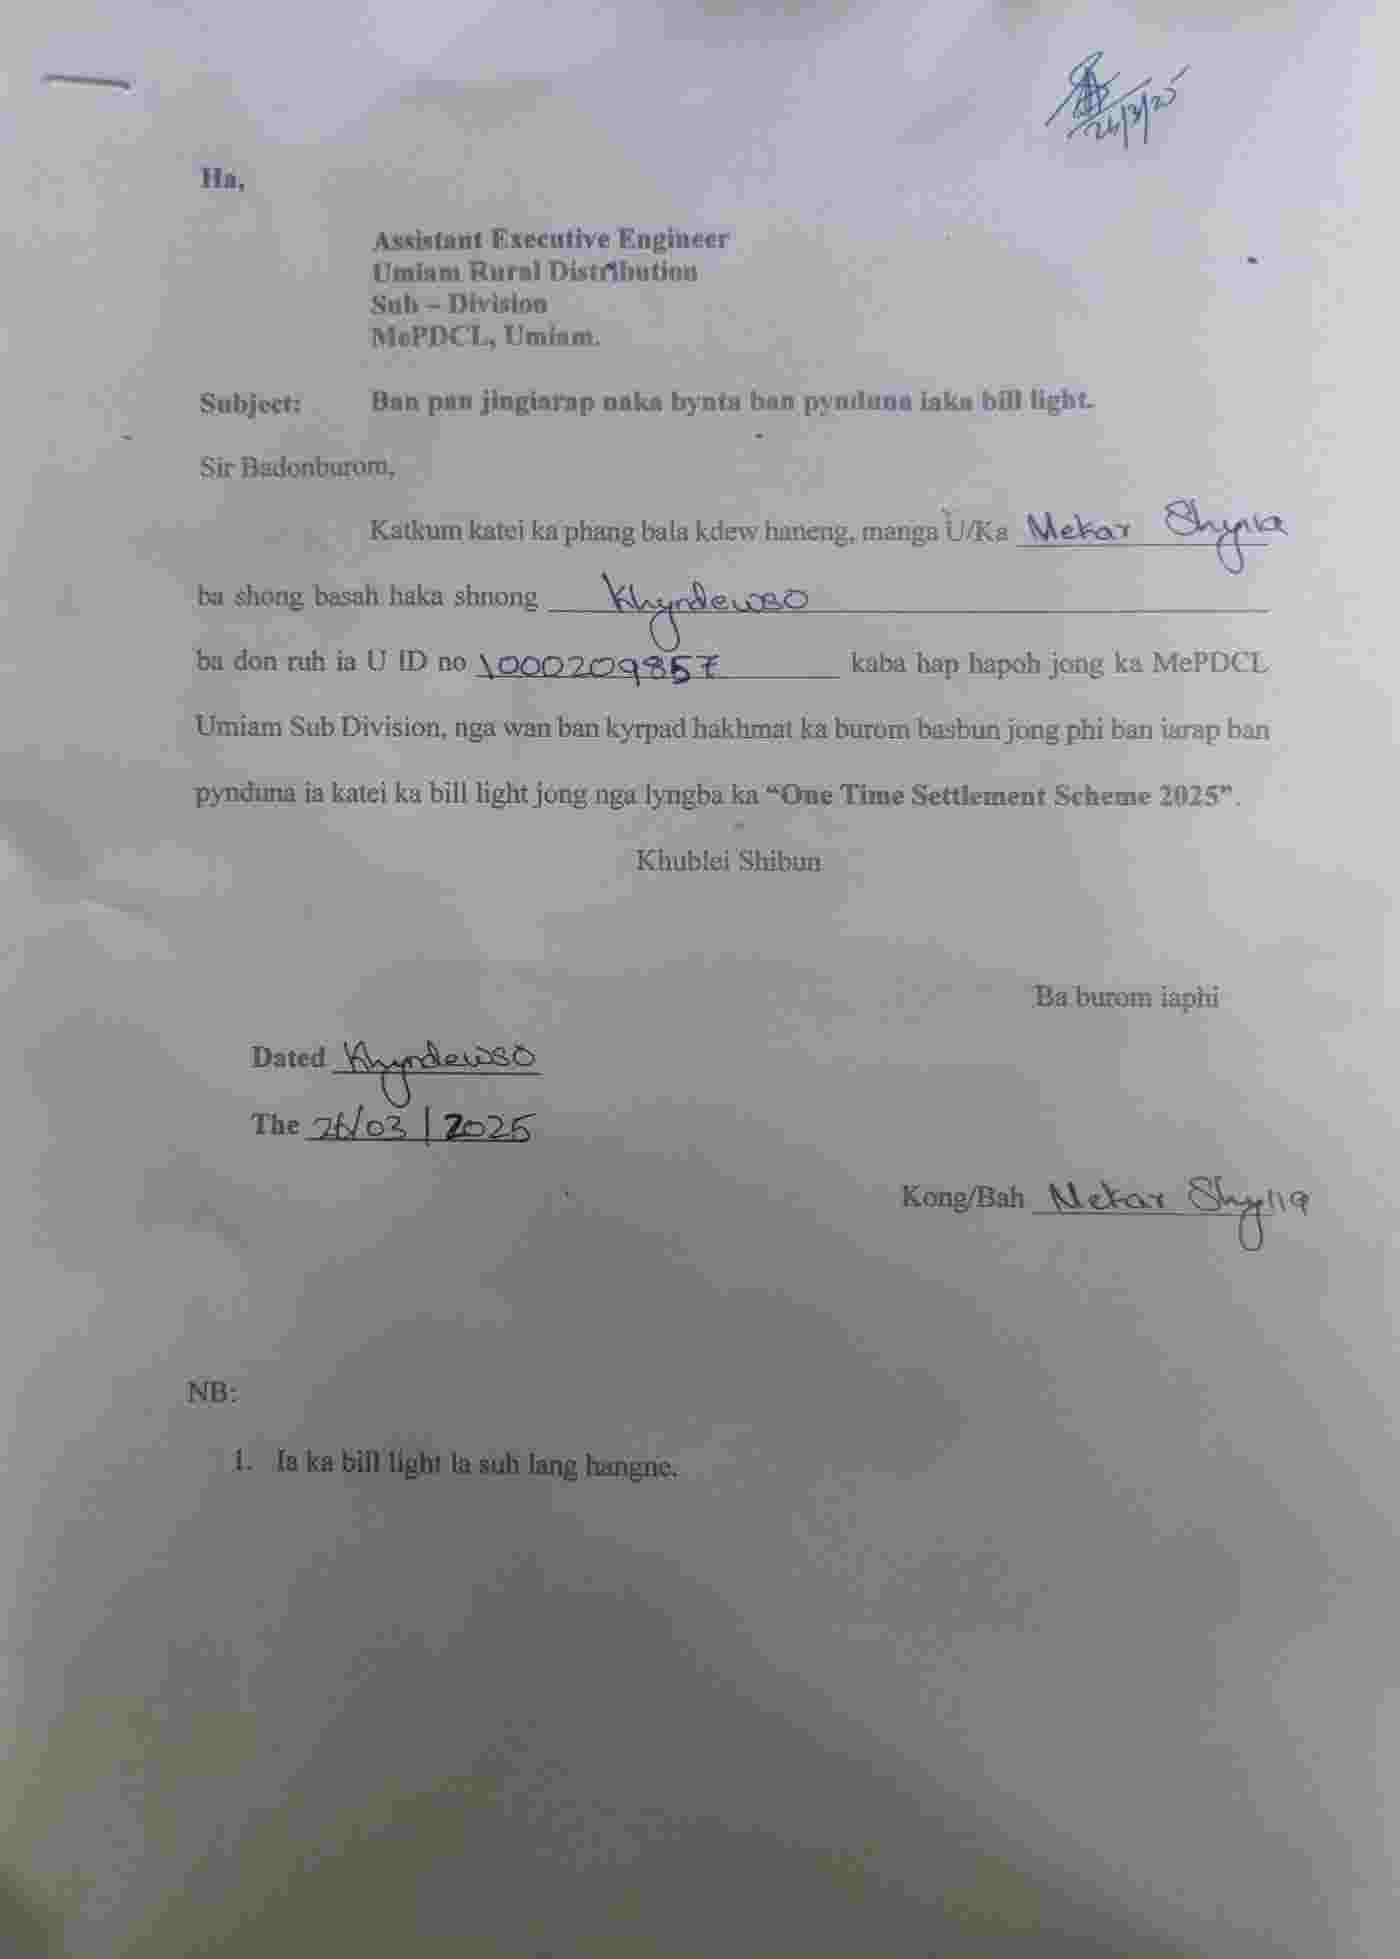 26/3/25
Ha,
Assistant Executive Engineer
Umiam Rural Distribution
Sub – Division
MePDCL, Umiam.
Subject: Ban pan jingiarap naka bynta ban pynduna iaka bill light.
Sir Badonburom,
Katkum katei ka phang bala kdew haneng, manga U/Ka Mekar Shylla
ba shong basah haka shnong Khyndewso
ba don ruh ia U ID no 1000209857 kaba hap hapoh jong ka MePDCL
Umiam Sub Division, nga wan ban kyrpad hakhmat ka burom basbun jong phi ban iarap ban
pynduna ia katei ka bill light jong nga lyngba ka “One Time Settlement Scheme 2025”.
Khublei Shibun
Ba burom iaphi
Dated Khyndewso
The 26/03/2025
Kong/Bah Mekar Shylla
NB:
1. Ia ka bill light la suh lang hangne.